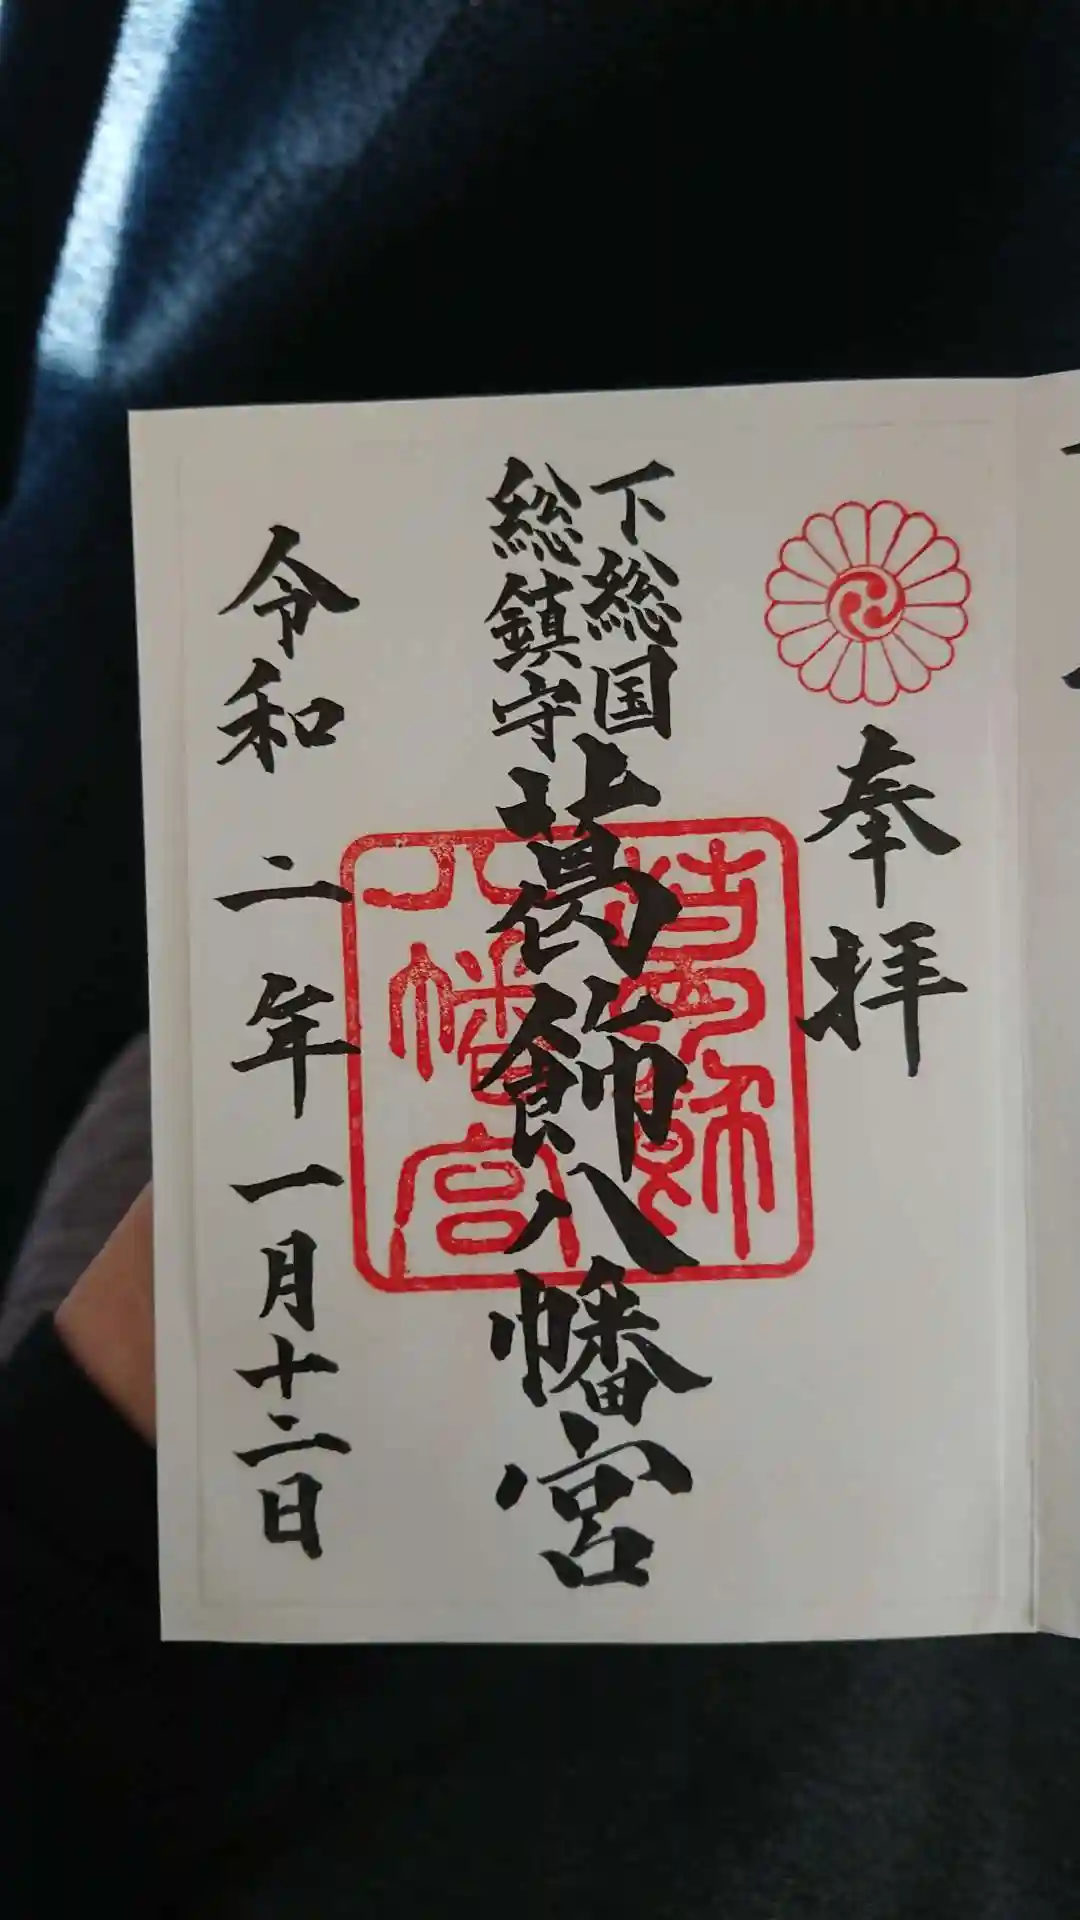 奉拝
下総国
総鎮守
葛飾八幡宮
葛飾
八幡宮
令和二年一月十二日